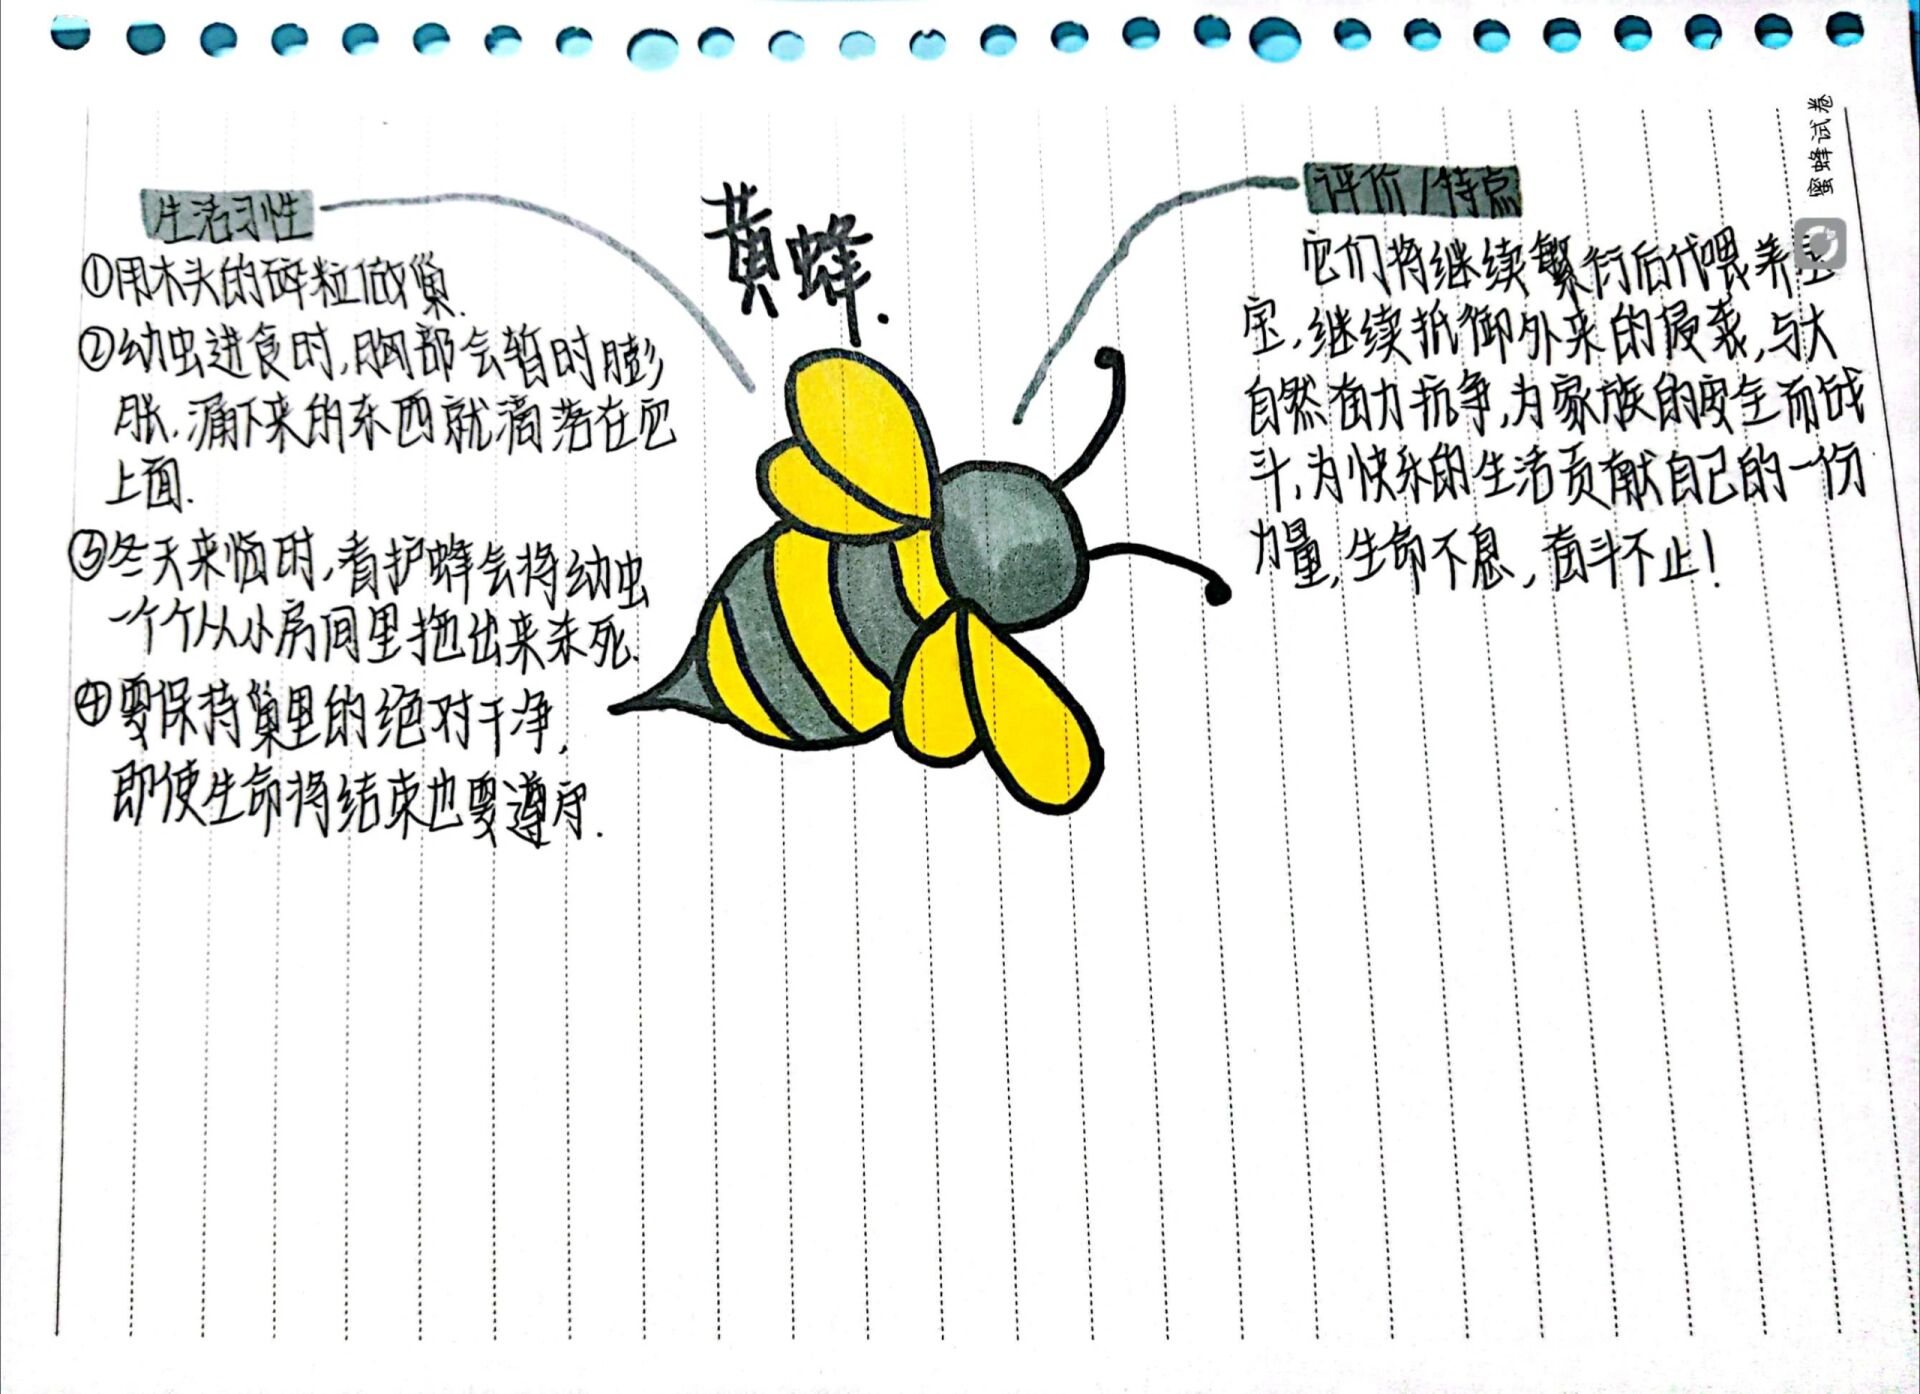 黄蜂.
生活习性
①用木头的碎粒做巢.
②幼虫进食时,胸部会暂时膨
胀,漏下来的东西就滴落在它
上面.
③冬天来临时,看护蜂会将幼虫
一个个从小房间里拖出来杀死.
④要保持巢里的绝对干净,
即使生命将结束也要遵守.
评价/特点
它们将继续繁衍后代喂养宝
宝,继续抵御外来的侵袭,与大
自然奋力抗争,为家族的安全而战
斗,为快乐的生活贡献自己的一份
力量,生命不息,奋斗不止!
蜜蜂试卷